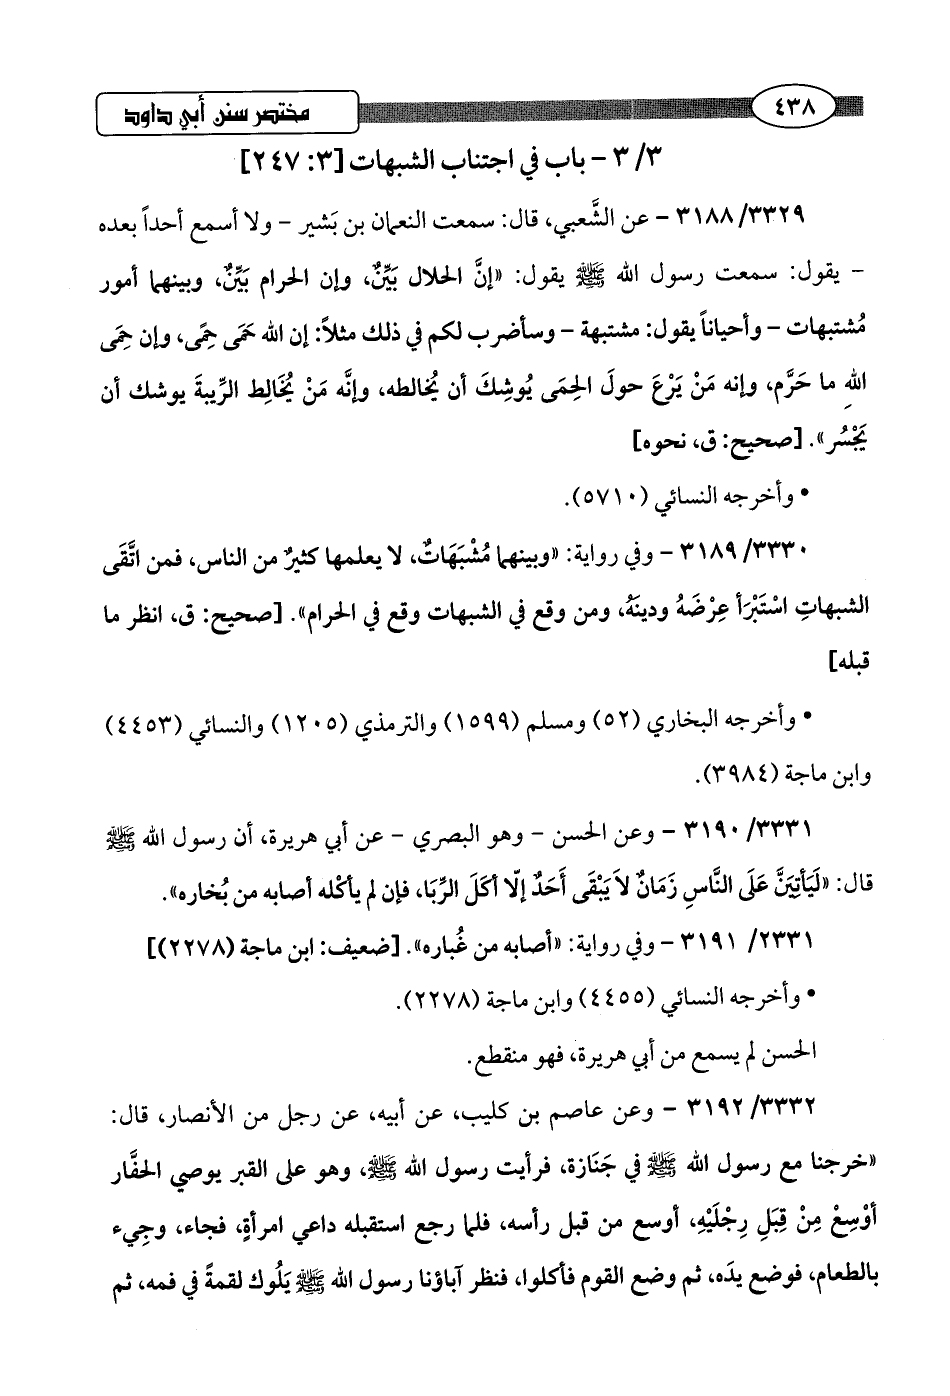 مختصر سنن أبي داود ٤٣٨
٣/ ٣ - باب في اجتناب الشبهات [٣: ٢٤٧]
٣١٨٨/٣٣٢٩ - عن الشَّعبي، قال: سمعت النعمان بن بَشير - ولا أسمع أحداً بعده
- يقول: سمعت رسول الله ﷺ يقول: «إنَّ الحلال بَيِّنٌ، وإن الحرام بَيِّنٌ، وبينهما أمور
مُشتبهات - وأحياناً يقول: مشتبهة - وسأضرب لكم في ذلك مثلاً: إن الله حَمَى حِمًى، وإن حِمَى
اللهِ ما حَرَّم، وإنه مَنْ يَرْعَ حولَ الحِمَى يُوشِكَ أن يُخالطه، وإنَّه مَنْ يُخالِط الرِّيبةَ يوشك أن
يَجْسُر». [صحيح: ق، نحوه]
• وأخرجه النسائي (٥٧١٠).
٣١٨٩/٣٣٣٠ - وفي رواية: «وبينهما مُشْبَهَاتٌ، لا يعلمها كثيرٌ من الناس، فمن اتَّقَى
الشبهاتِ اسْتَبْرَأ عِرْضَهُ ودينَهُ، ومن وقع في الشبهات وقع في الحرام». [صحيح: ق، انظر ما
قبله]
• وأخرجه البخاري (٥٢) ومسلم (١٥٩٩) والترمذي (١٢٠٥) والنسائي (٤٤٥٣)
وابن ماجة (٣٩٨٤).
٣١٩٠/٣٣٣١ - وعن الحسن - وهو البصري - عن أبي هريرة، أن رسول الله ﷺ
قال: «لَيَأتِيَنَّ عَلَى النَّاسِ زَمَانٌ لاَ يَبْقَى أَحَدٌ إلّا أكَلَ الرِّبَا، فإن لم يأكْله أصابه من بُخاره».
٣١٩١ /٢٣٣١ - وفي رواية: «أصابه من غُباره». [ضعيف: ابن ماجة (٢٢٧٨)]
• وأخرجه النسائي (٤٤٥٥) وابن ماجة (٢٢٧٨).
الحسن لم يسمع من أبي هريرة، فهو منقطع.
٣١٩٢/٣٣٣٢ - وعن عاصم بن كليب، عن أبيه، عن رجل من الأنصار، قال:
«خرجنا مع رسول الله ﷺ في جَنَازة، فرأيت رسول الله ﷺ، وهو على القبر يوصي الحفَّار
أوْسِعْ مِنْ قِبَلِ رِجْلَيْهِ، أوسع من قبل رأسه، فلما رجع استقبله داعي امرأةٍ، فجاء، وجِيء
بالطعام، فوضع يدَه، ثم وضع القوم فأكلوا، فنظر آباؤنا رسول الله ﷺ يَلُوك لقمةً في فمه، ثم